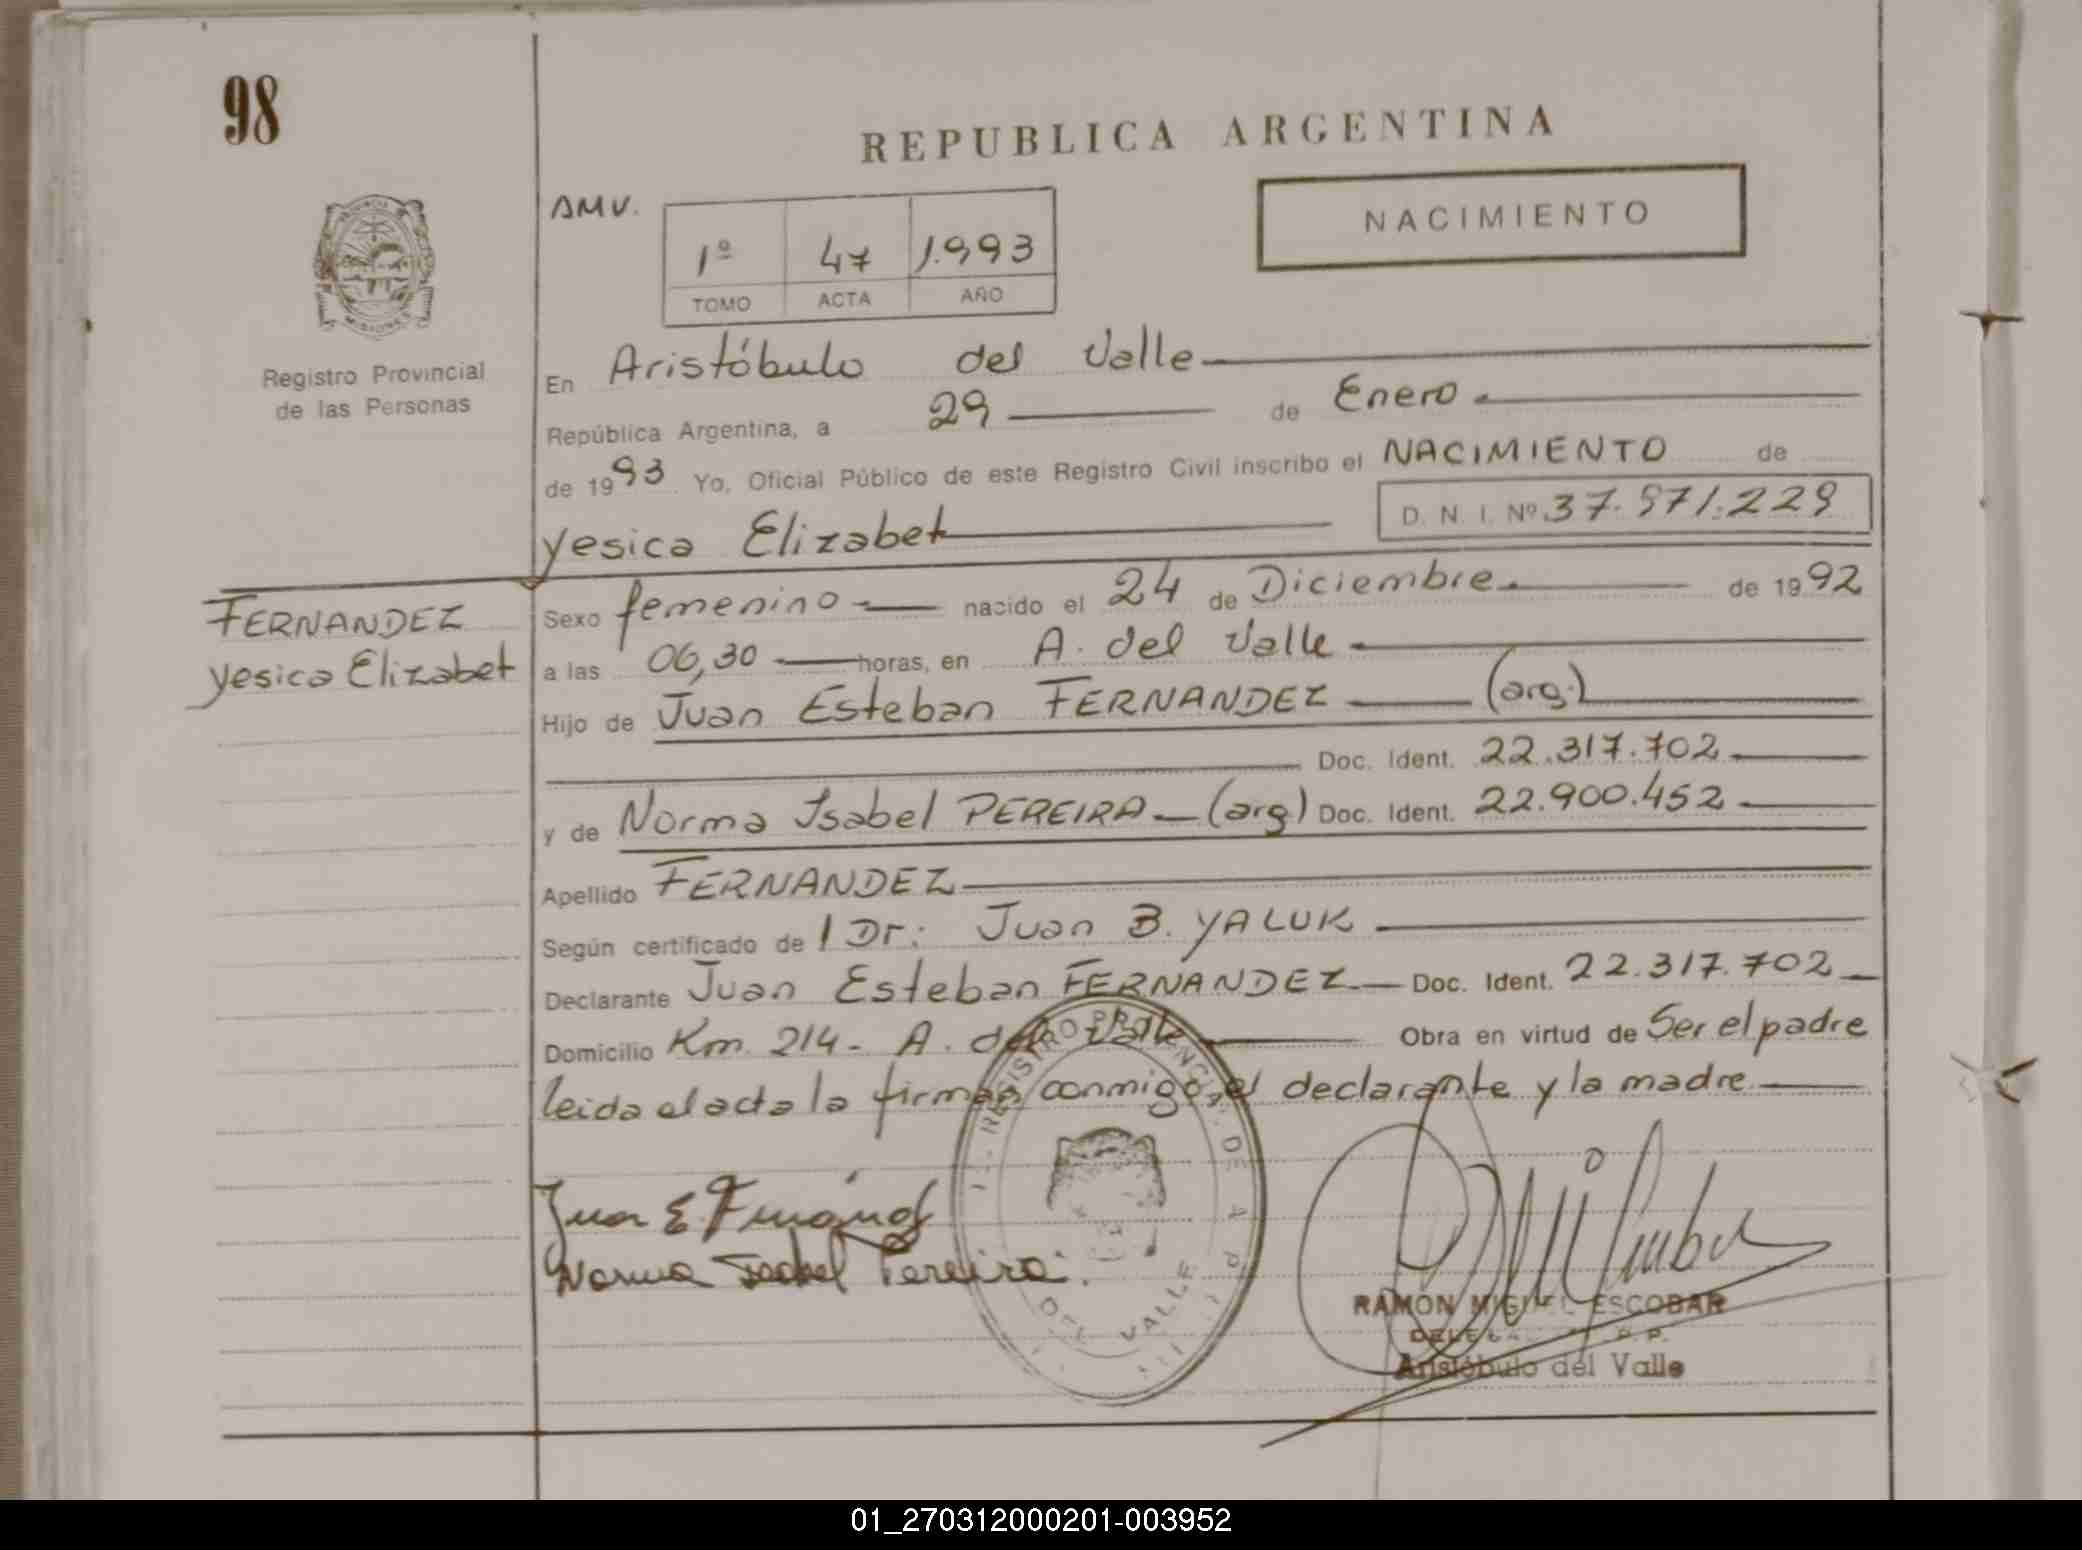 98
REPUBLICA ARGENTINA
AMV.
NACIMIENTO
1º 47 1.993
TOMO ACTA AÑO
PROVINCIA
MISIONES
Registro Provincial
de las Personas
En Aristóbulo del Valle
República Argentina, a 29 de Enero
de 1993 Yo, Oficial Público de este Registro Civil inscribo el NACIMIENTO de
D. N. I. Nº 37.971.229
Yesica Elizabet
FERNANDEZ
Yesica Elizabet
Sexo femenino nacido el 24 de Diciembre de 1992
a las 06,30 horas, en A. del Valle
Hijo de Juan Esteban FERNANDEZ (arg.)
Doc. Ident. 22.317.702
y de Norma Isabel PEREIRA (arg) Doc. Ident. 22.900.452
Apellido FERNANDEZ
Según certificado de l Dr: Juan B. YALUK
Declarante Juan Esteban FERNANDEZ Doc. Ident. 22.317.702
Domicilio Km. 214 - A. del Valle Obra en virtud de Ser el padre
leida el acta la firman conmigo, el declarante y la madre
Juan E Fernández
Norma Isabel Pereira.
REGISTRO PROVINCIAL DE
DEL VALLE
RAMÓN MIGUEL ESCOBAR
Aristóbulo del Valle
01_270312000201-003952